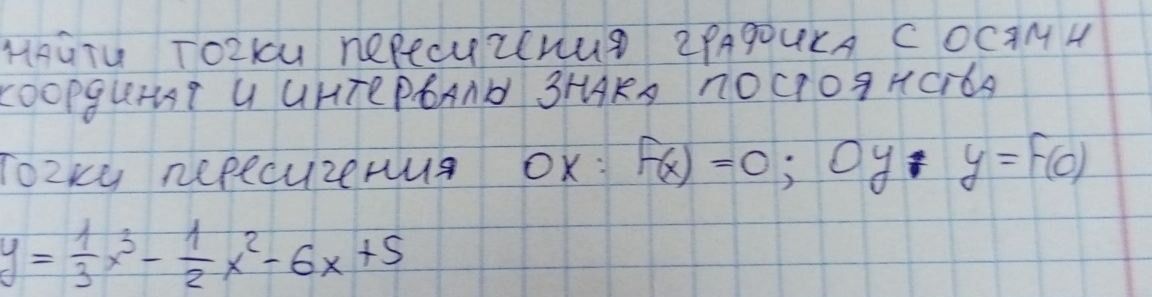 НАЙТИ ТОЧКИ ПЕРЕСИЧЕНИЯ ГРАФИКА С ОСЯМИ
КООРДИНАТ И ИНТЕРВАЛЫ ЗНАКА ПОСТОЯНСТВА
ТОЧКИ ПЕРЕСИЧЕНИЯ OX: F(x) = 0; Oy: y = F(0)
y = 1/3 x³ - 1/2 x² - 6x + 5